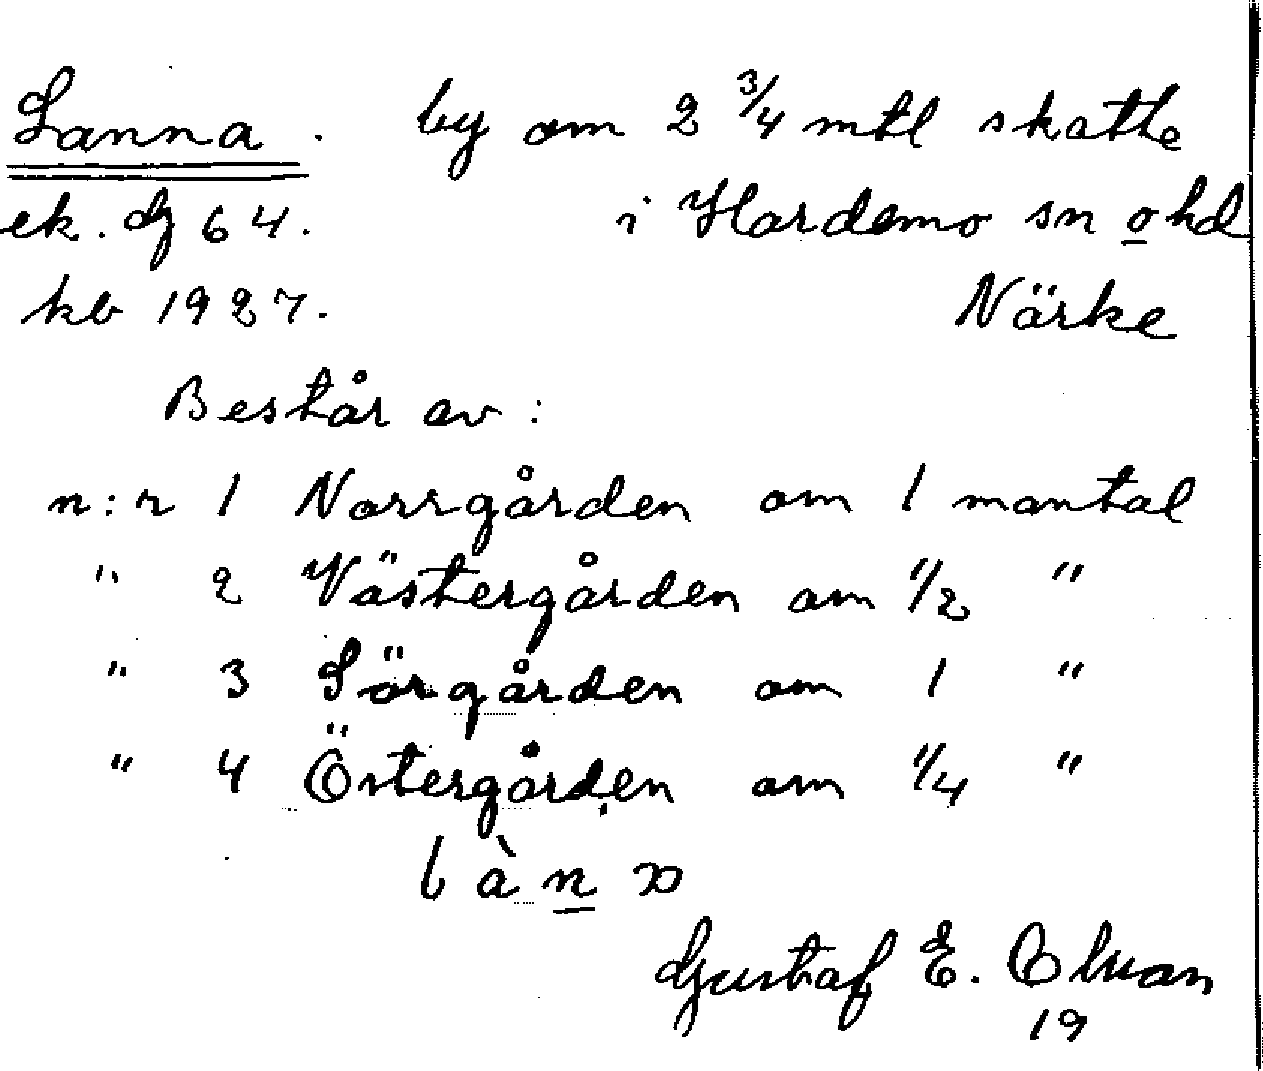 Lanna. by om 2 3/4 mtl skatte
ek. dg 64. i Hardemo sn o hd
kb 1927. Närke
Består av:
n:r 1 Norrgården om 1 mantal
" 2 Västergården om 1/2 "
" 3 Sörgården om 1 "
" 4 Östergården om 1/4 "
Gustaf E.
19